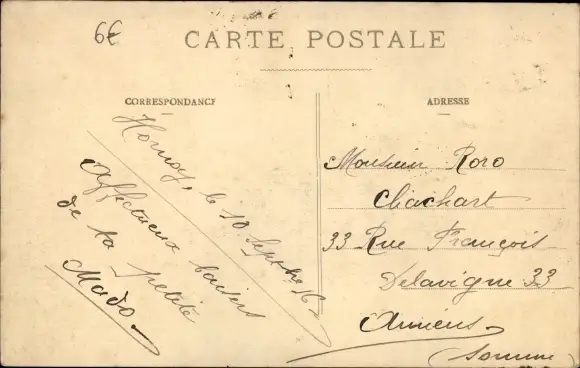 6€
CARTE POSTALE
CORRESPONDANCE
Hornoy, le 10 Septbre 16
Affectueux baisers
de ta petite
Mado
ADRESSE
Monsieur Roro
Chachart
33 Rue François
Delavigne 33
Amiens
(Somme)